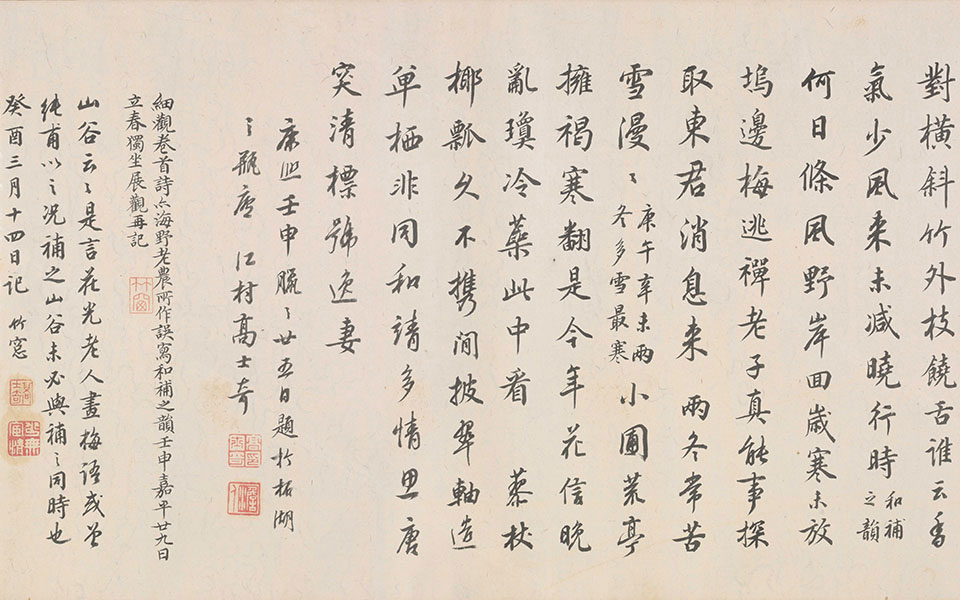 對橫斜竹外枝饒舌誰云香
氣少風來未減曉行時 和補
之韻
何日條風野岸回歲寒未放
塢邊梅逃禪老子真能事探
取東君消息來 兩冬常苦
雪漫〻 庚午辛未兩
冬多雪最寒
小圃荒亭
擁褐寒翻是今年花信晚
亂瓊冷蘂此中看 藜杖
椰瓢久不攜澗披翠軸造
單栖非同和靖多情思喚
突清標號逸妻
康熙壬申臘〻廿五日題於柘湖
〻瓶廬 江村高士奇
細觀卷首詩亦海野老農所作誤寫和補之韻壬申嘉平廿九日
立春獨坐展觀再記
山谷云〻是言花光老人畫梅語或曾
純甫以〻況補之山谷未必與補〻同時也
癸酉三月十四日記 竹窓